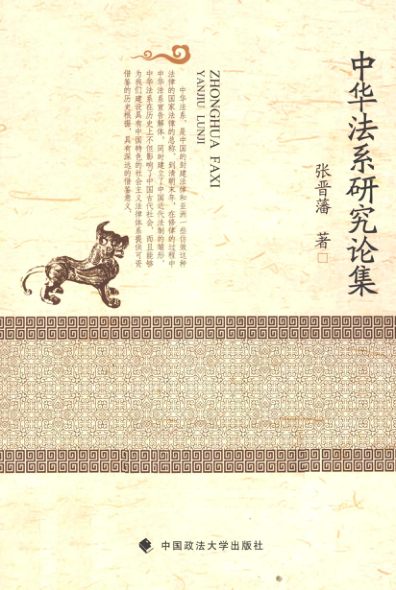 中华法系研究论集
张晋藩 著
ZHONGHUA FAXI
YANJIU LUNJI
中华法系，是中国的封建法律和亚洲一些仿效这种
法律的国家法律的总称。到清朝末年，在修律的过程中
中华法系宣告解体，同时建立了中国近代法制的雏形。
中华法系在历史上不但影响了中国古代社会，而且能够
为我们建设具有中国特色的社会主义法律体系提供可资
借鉴的历史根据，具有深远的借鉴意义。
中国政法大学出版社